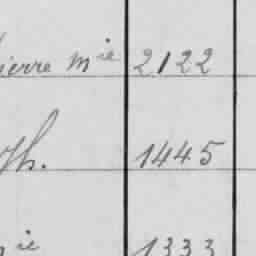 ierre Mie 2122
Th. 1445
ie 1333